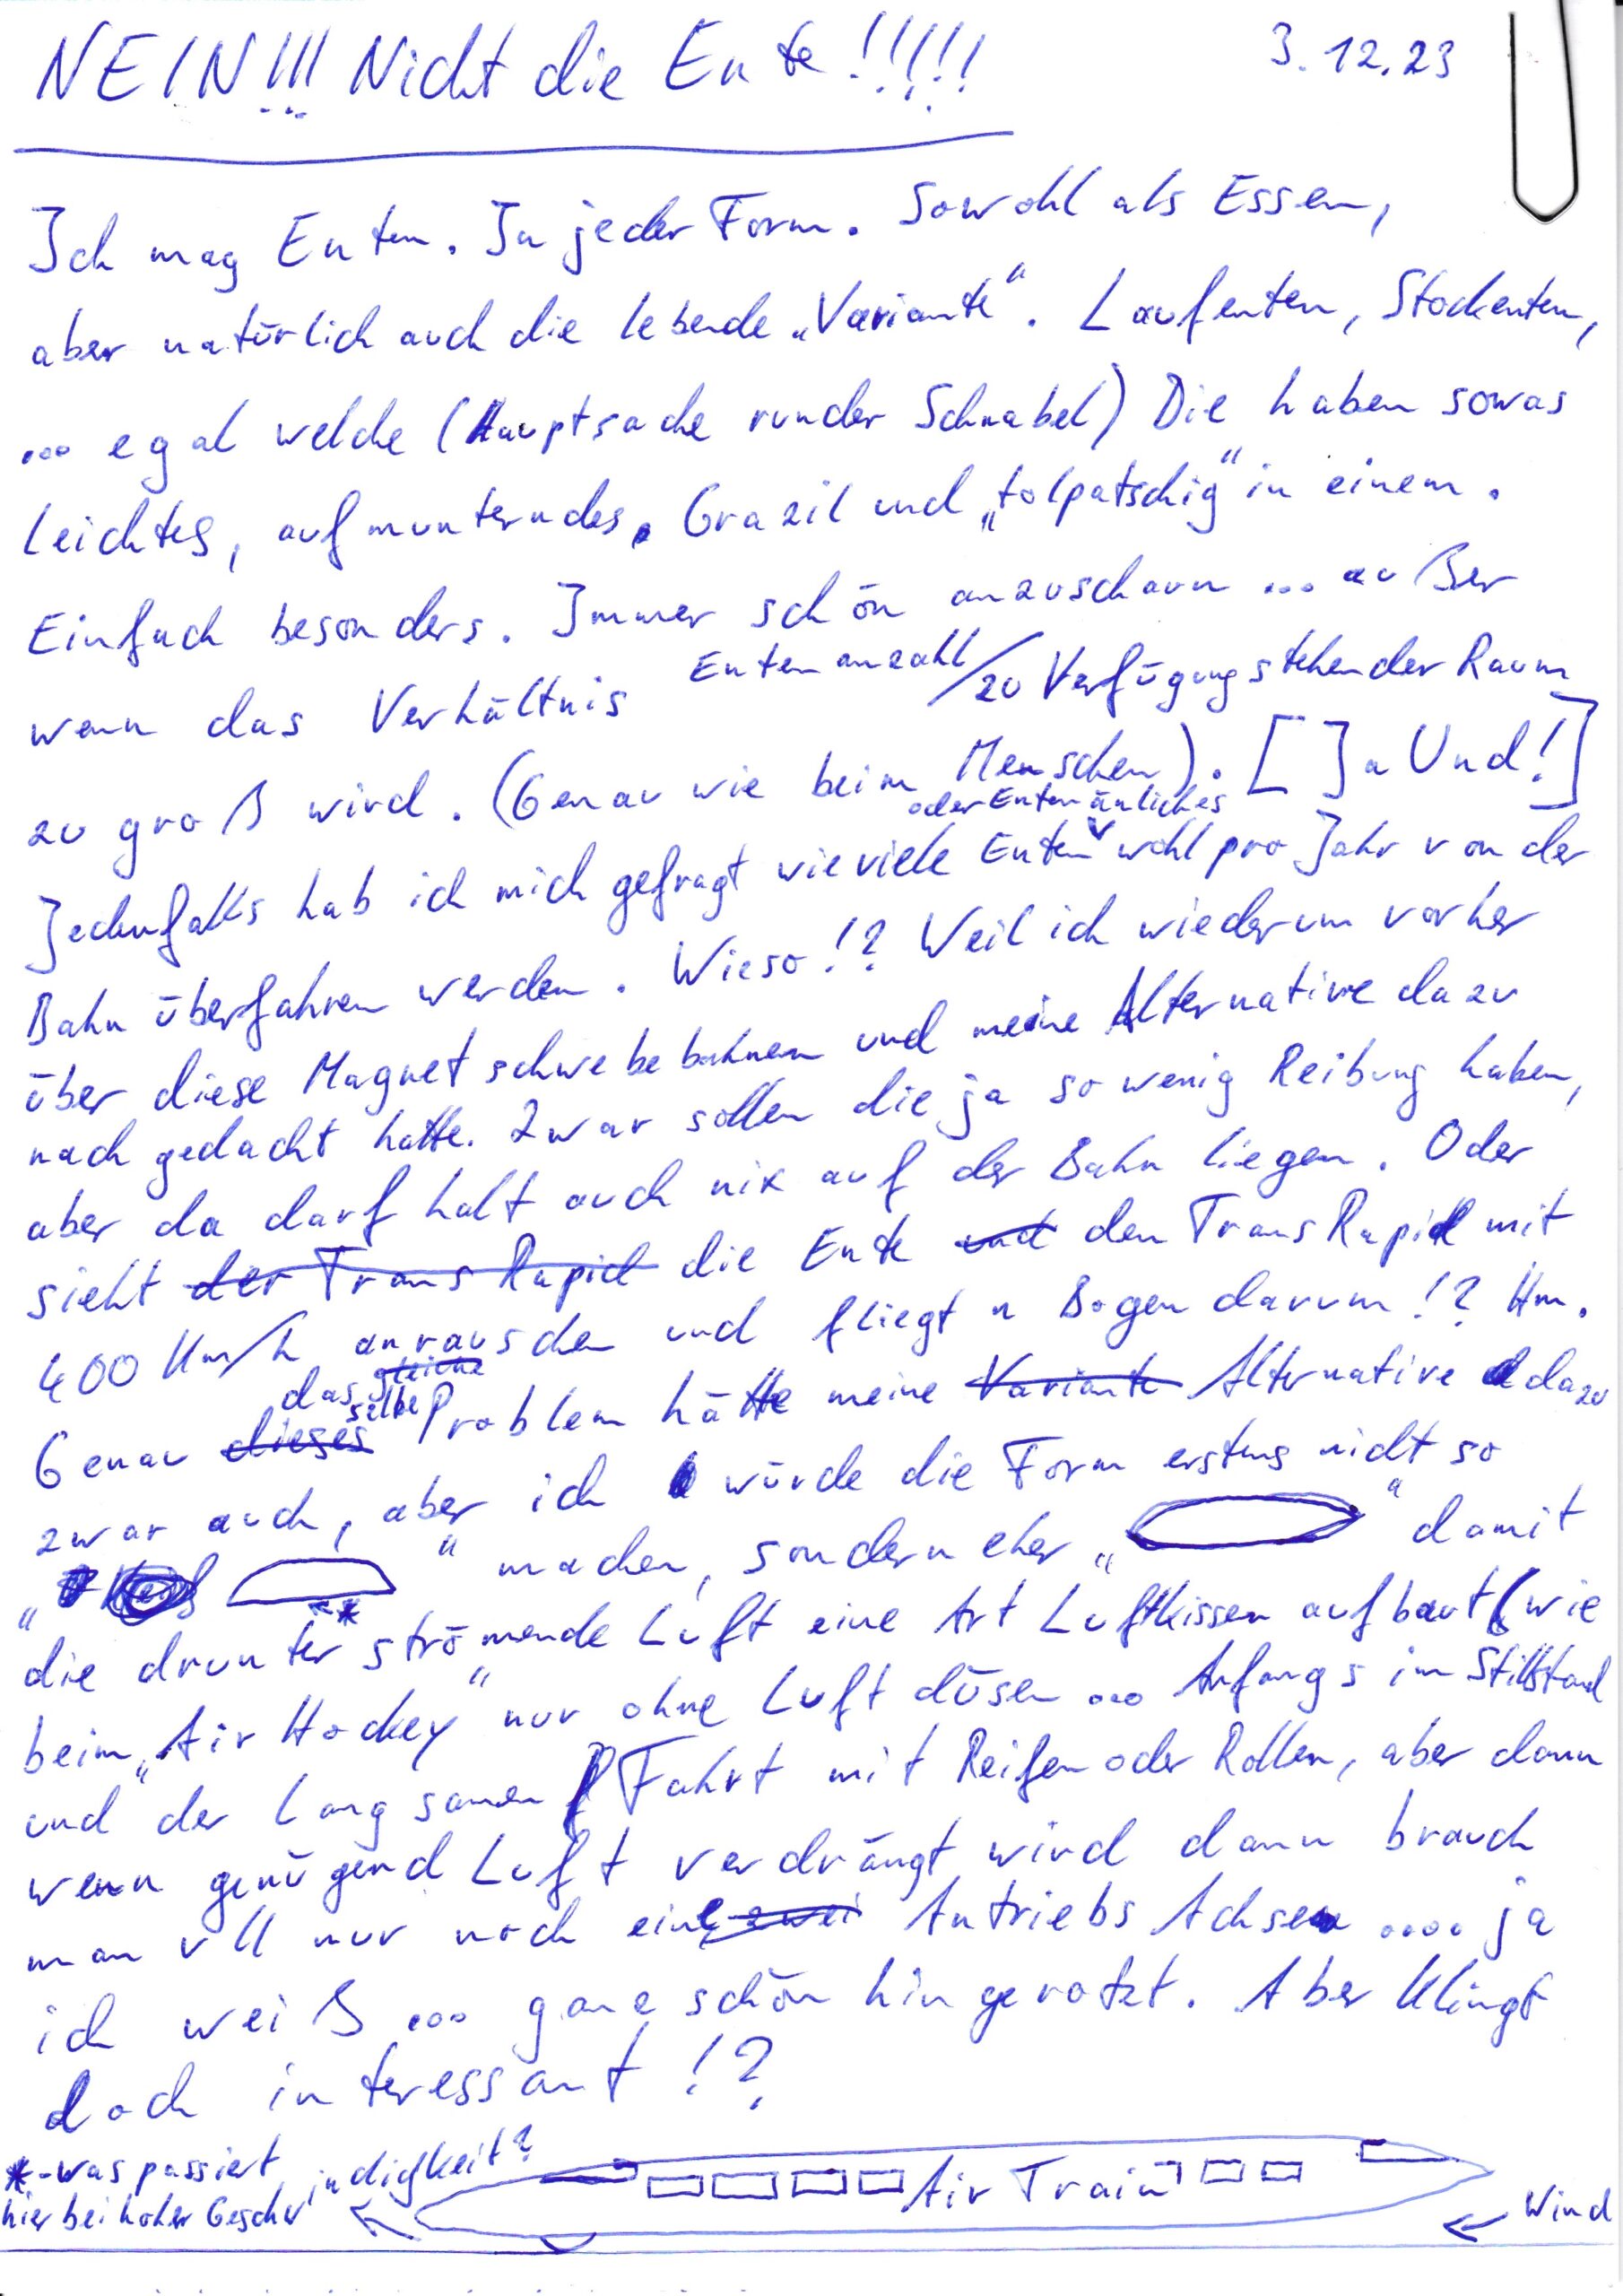 NEIN!!! Nicht die Ente!!!!! 3.12.23
Ich mag Enten. In jeder Form. Sowohl als Essen,
aber natürlich auch die lebende „Variante“. Laufenten, Stockenten,
... egal welche (Hauptsache runder Schnabel) Die haben sowas
leichtes, aufmunterndes. Grazil und „tolpatschig“ in einem.
Einfach besonders. Immer schön anzuschaun ... außer
wenn das Verhältnis Entenanzahl/zu Verfügung stehender Raum
zu groß wird. (Genau wie beim Menschen). [Ja Und!]
Jedenfalls hab ich mich gefragt wieviele Enten oder Entenänliches wohl pro Jahr von der
Bahn überfahren werden. Wieso!? Weil ich wiederum vorher
über diese Magnetschwebebahnen und meine Alternative dazu
nach gedacht hatte. Zwar sollen die ja so wenig Reibung haben,
aber da darf halt auch nix auf der Bahn liegen. Oder
sieht der Trans Rapid die Ente und den Trans Rapid mit
400 Km/h anrauschen und fliegt n Bogen darum!? Hm.
Genau dieses das gleiche selbe Problem hätte meine Variante Alternative dazu
zwar auch, aber ich würde die Form erstens nicht so
„ “ machen, sondern eher „ “ damit
die drunter * strömende Luft eine Art Luftkissen aufbaut (wie
beim „Air Hockey“ nur ohne Luft düsen ... Anfangs im Stillstand
und der langsamen Fahrt mit Reifen oder Rollen, aber dann
wenn genügend Luft verdrängt wird dann brauch
man vll nur noch eine zwei Antriebs Achse .... ja
ich weiß ... ganz schön hin gerotzt. Aber Klingt
doch interessant!?
*-was passiert
hier bei hoher Geschwindigkeit?
Air Train
Wind